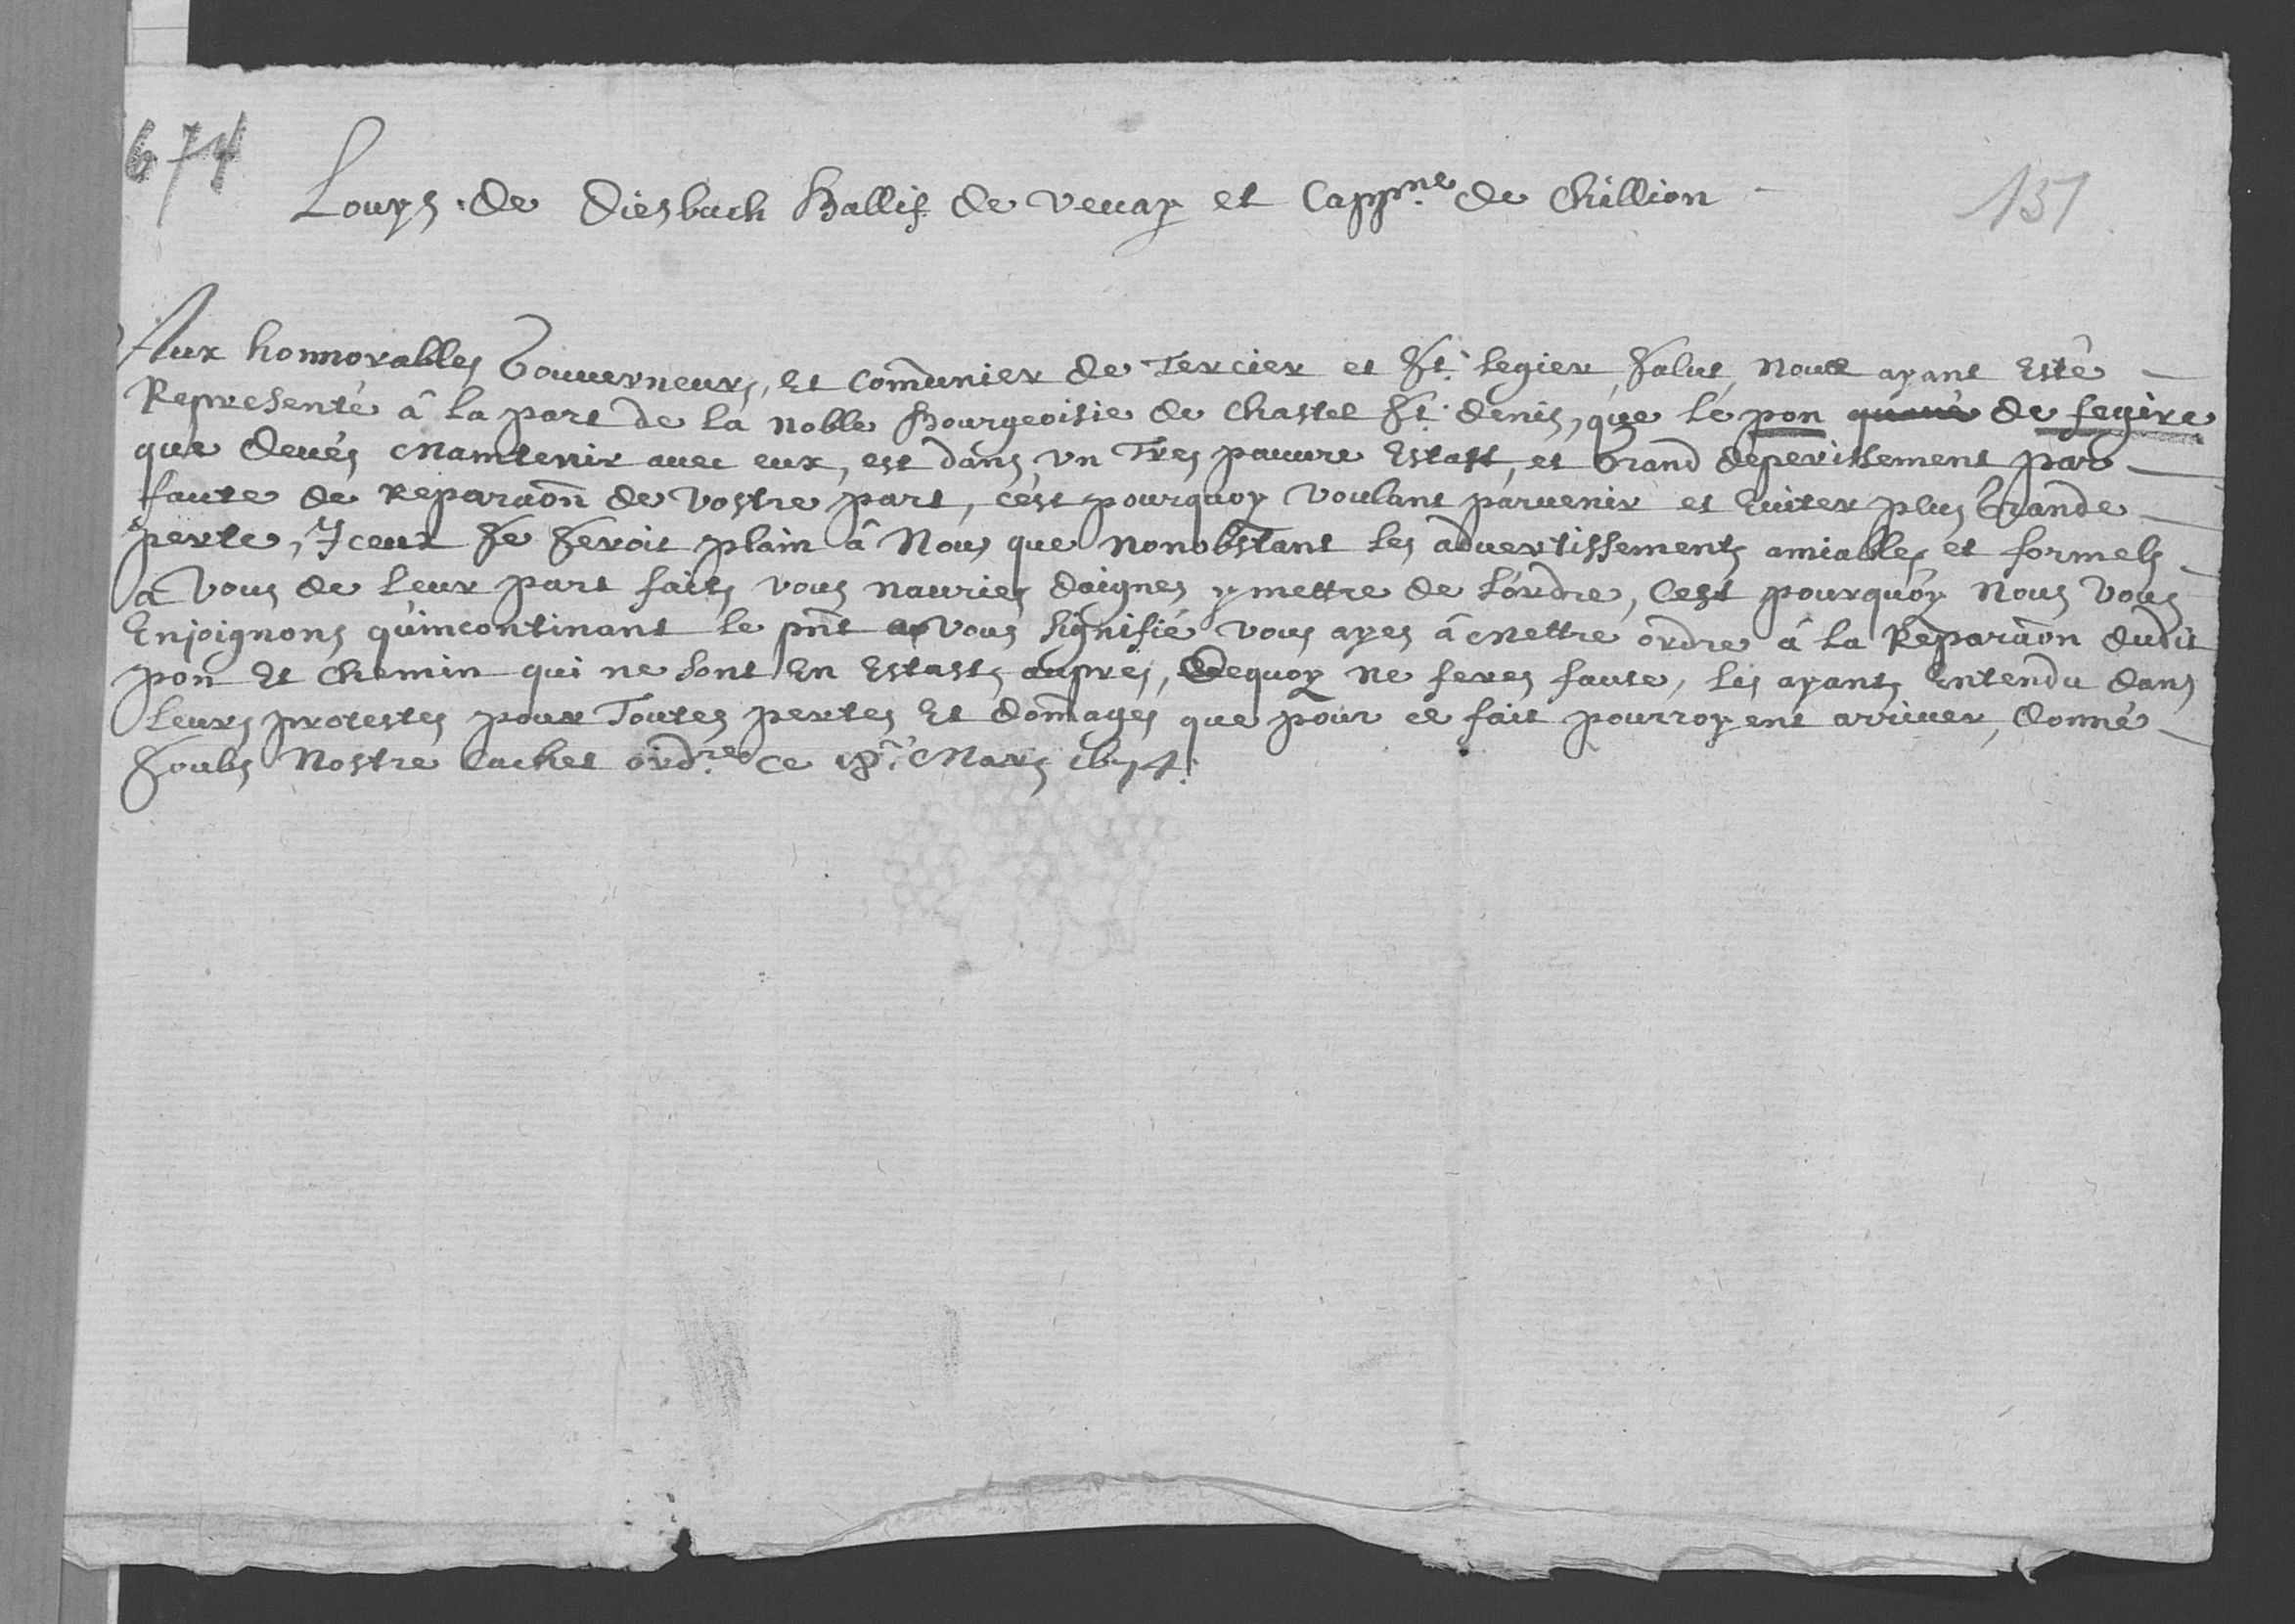 1674
151
Louys de Diesbach Ballif de Vevay et Capp.ne de Chillion
Aux honnorables Gouverneurs, et Comunier de Tercier et St. Legier, Salut, Nous ayant Esté
Representé â la part de la Noble Bourgeoisie de Chastel St. denis, que le pon de fegire
que devés Maintenir avec eux, est dans un Tres pauvre Estast, et Grand deperissement par
faute de Reparaõn de Vostre part, c'est pourquoy Voulant parvenir et Eviter plus Grande
perte, Iceux Se Seroit plain â Nous que Nonobstant les advertissements amiables et formels
a Vous de leur part faits vous nauries daignes y mettre de l'ordre, Cest pourquoy Nous Vous
Enjoignons qu'incontinant le pn̄t Vous Signifié vous ayes â Mettre ordre â la Reparaõn dudit
pon Et Chemin qui ne sont En Estasts aupres, dequoy Ne feres faute, les ayants Entendu dans
Leurs protestes pour Toutes pertes Et dom̄ages que pour ce fait pourroyent arriver, donné
Soubs Nostre Cachet ord.re Ce 18.e Mars 1674.